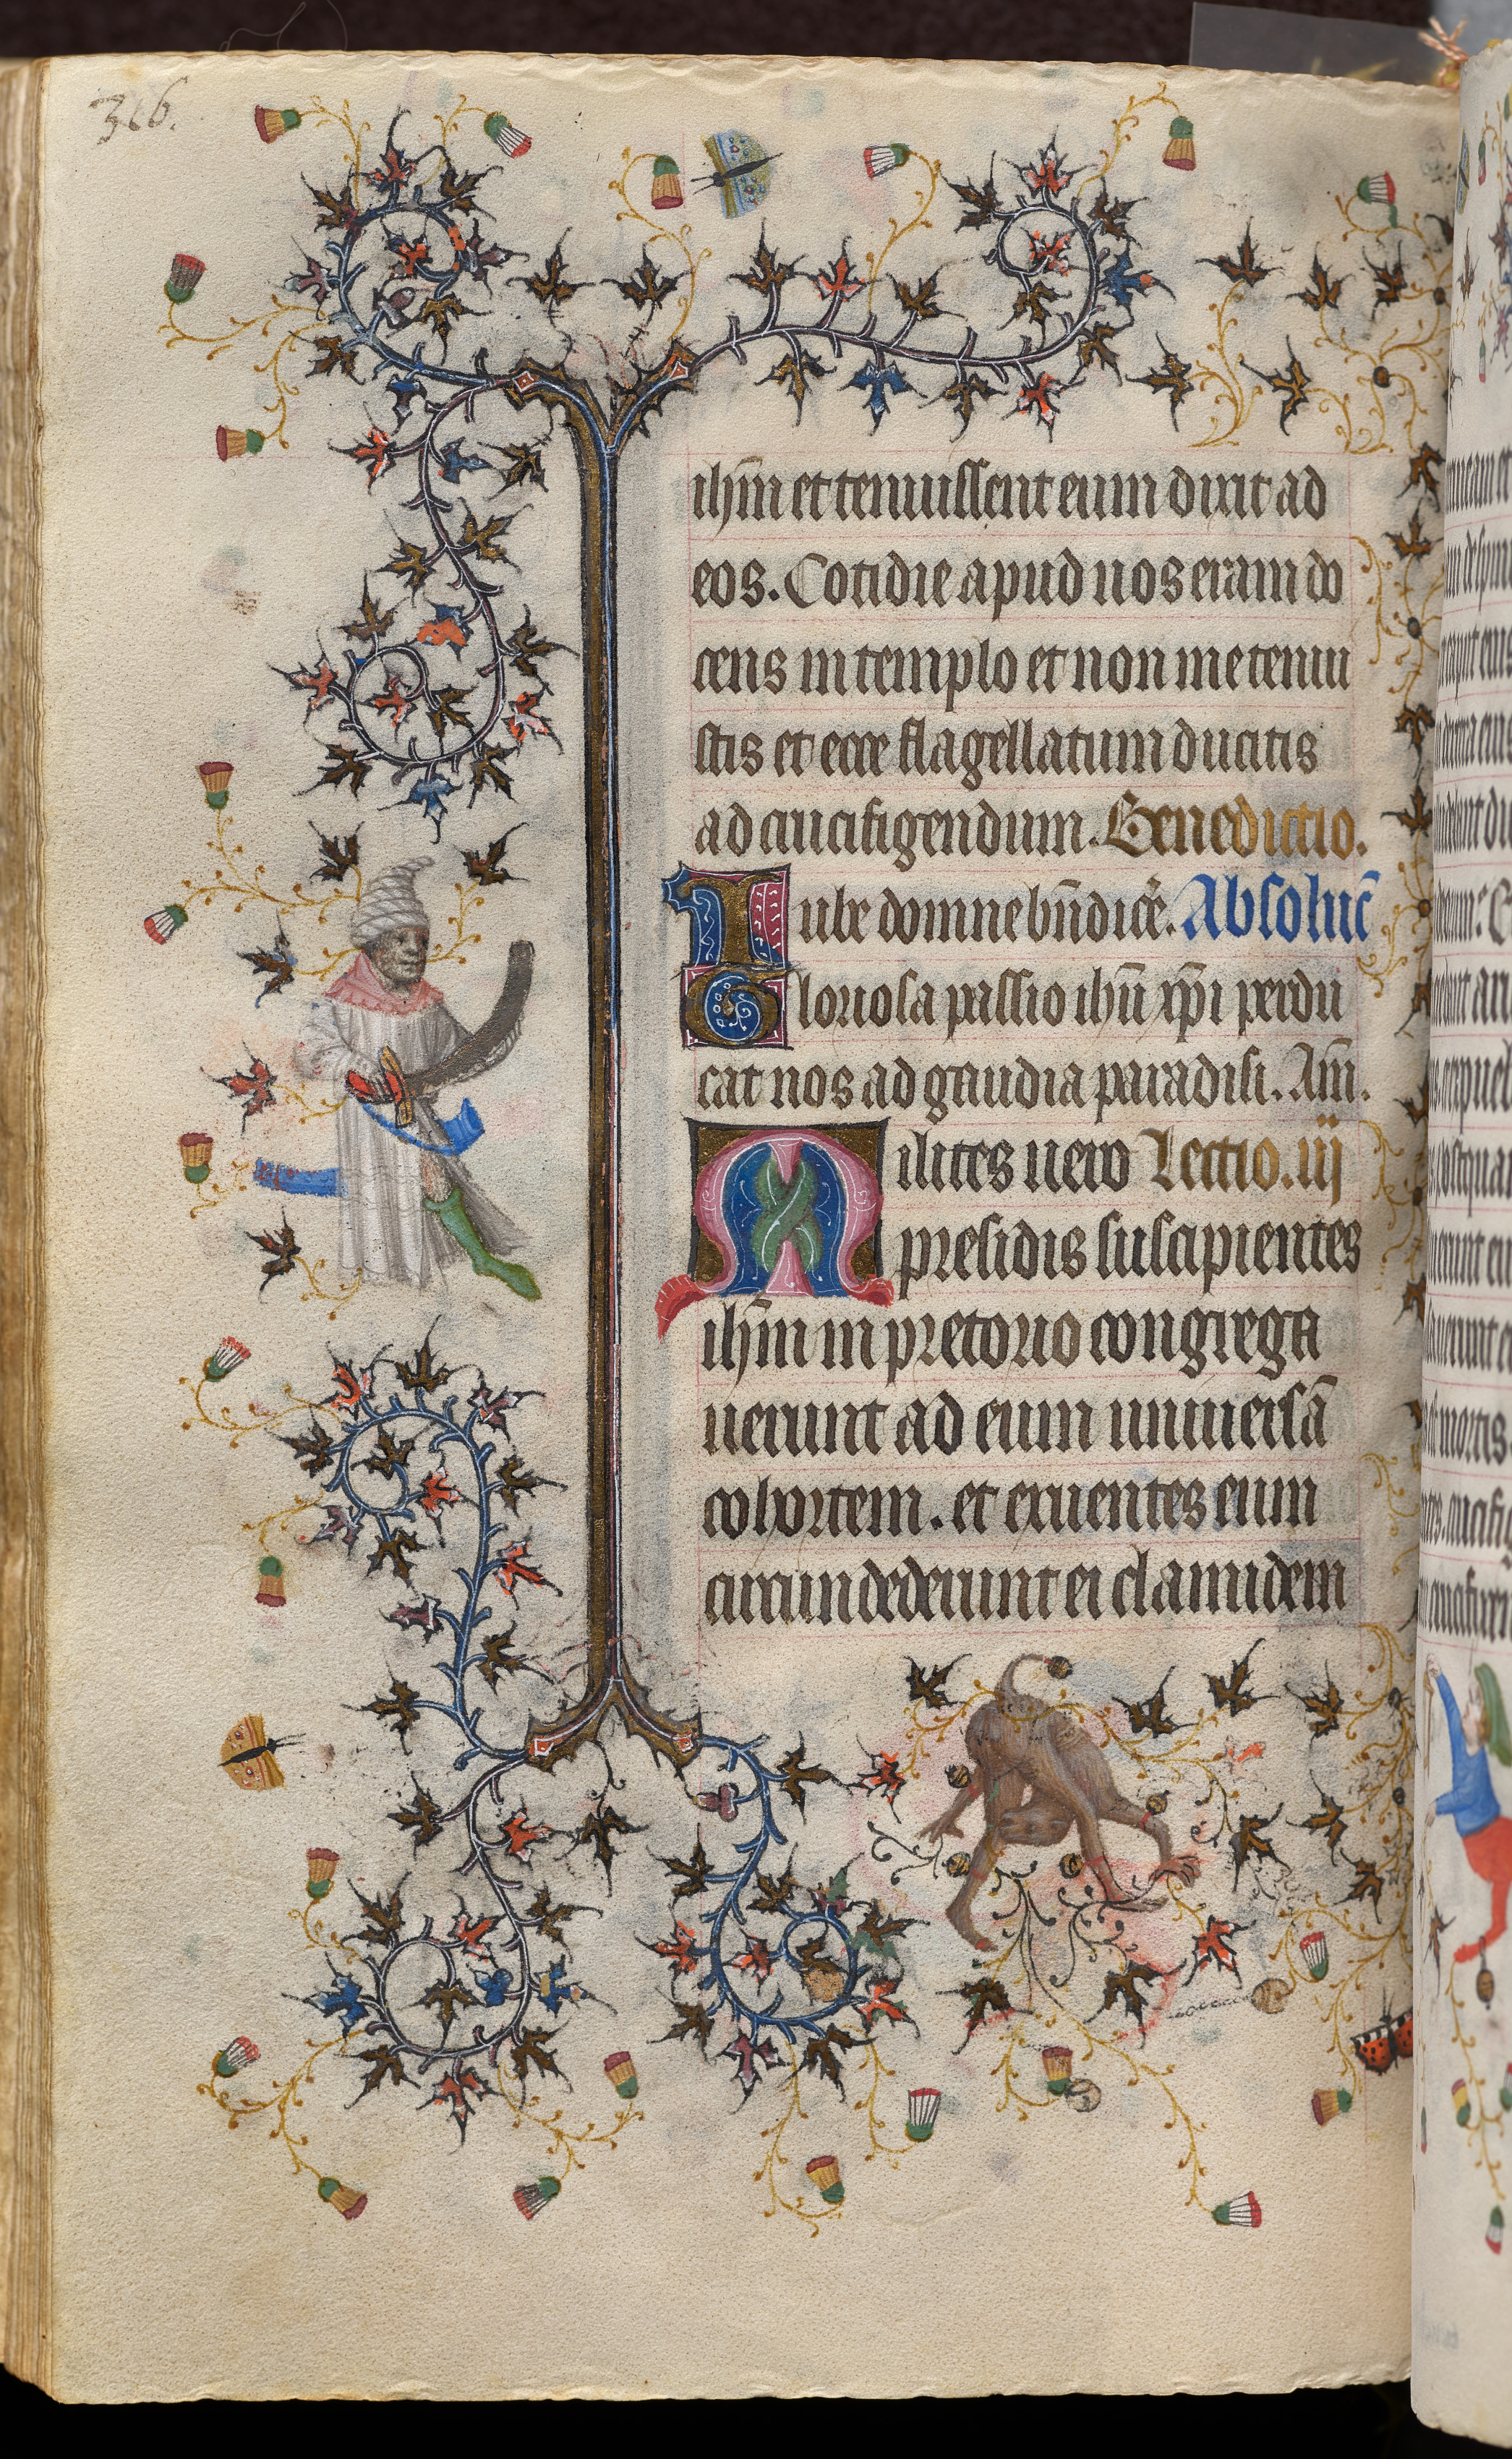 316.
ihm̄ et tenuissent eum dixit ad
eos. Cotidie apud uos eram do
cens in templo et non me tenui
stis et ecce flagellatum ducitis
ad crucifigendum. Benedictio.
Iube domne bn̄dicẽ. Absoluc̄
Gloriosa passio ihū xp̄i perdu
cat nos ad gaudia paradisi. Am̄.
Milites uero Lectio. iij
presidis suscipientes
ihm̄ in pretorio congrega
uerunt ad eum uniuersā
cohortem. et exuentes eum
circundederunt ei clamidem